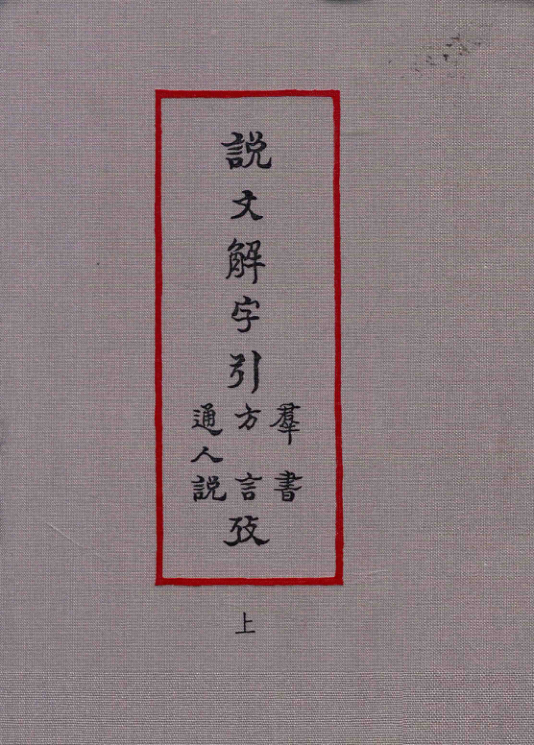 説文解字引
羣書
方言
通人説
攷
上